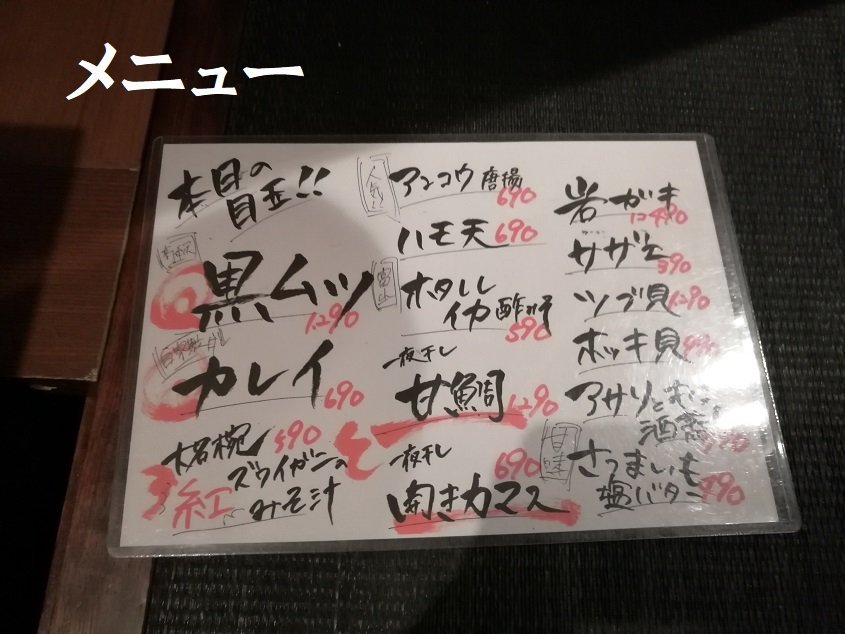 メニュー
本日の
目玉!!
黒ムツ
1,290
カレイ
690
大名椀 590
紅ズワイガニの
みそ汁
人気!
アンコウ唐揚
690
ハモ天 690
富山
ホタルイカ酢みそ
590
一夜干し
甘鯛 1,290
一夜干し
開きカマス
690
岩ガキ
サザエ
390
ツブ貝 1,290
ホッキ貝
アサリ
酒蒸
甘味
さつまいも
塩バター 490